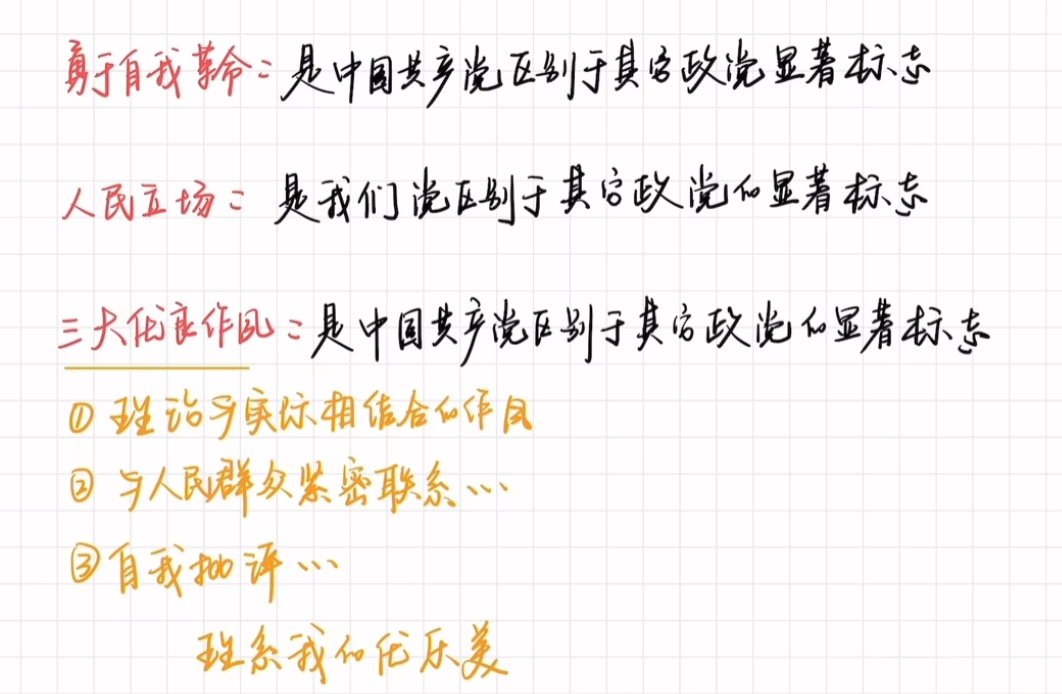 勇于自我革命：是中国共产党区别于其它政党显著标志
人民立场：是我们党区别于其它政党的显著标志
三大优良作风：是中国共产党区别于其它政党的显著标志
① 理论与实际相结合的作风
② 与人民群众紧密联系…
③ 自我批评…
理系我的优乐美